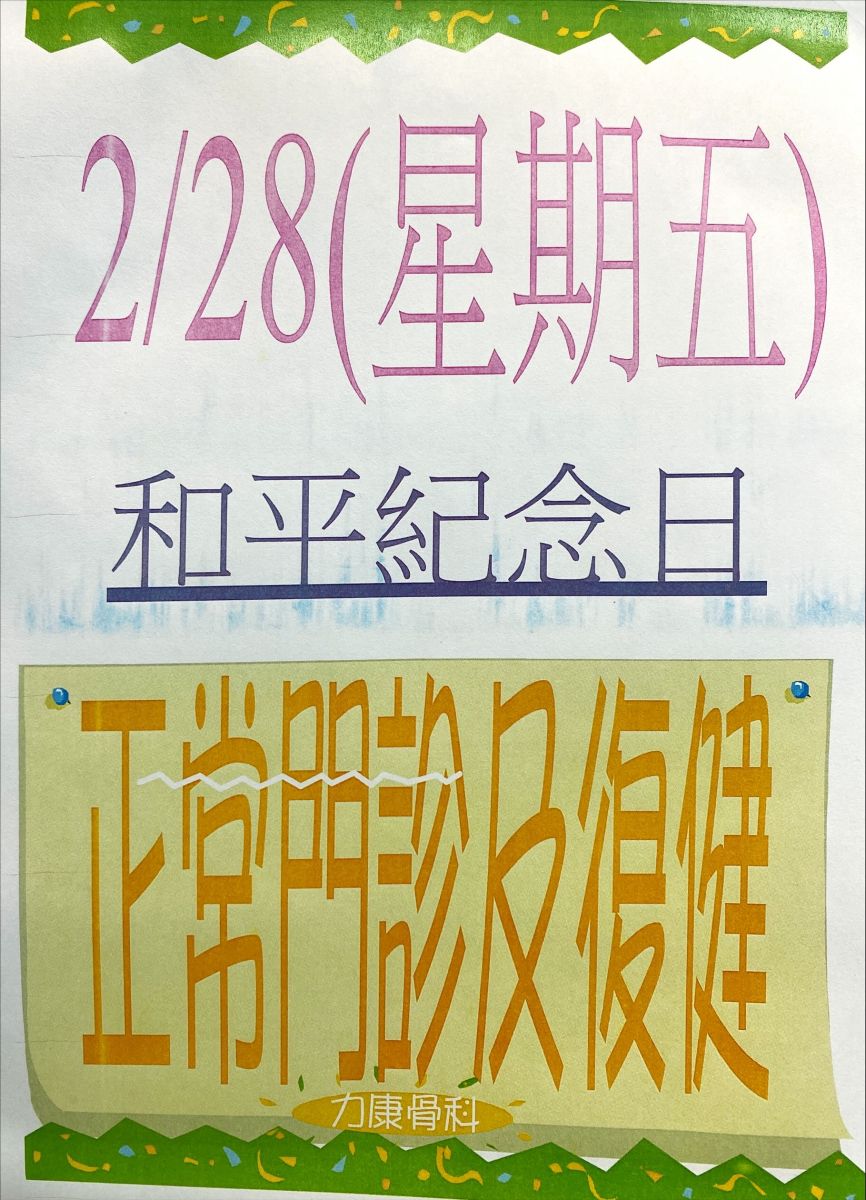 2/28(星期五)
和平紀念日
正常門診及復健
力康骨科